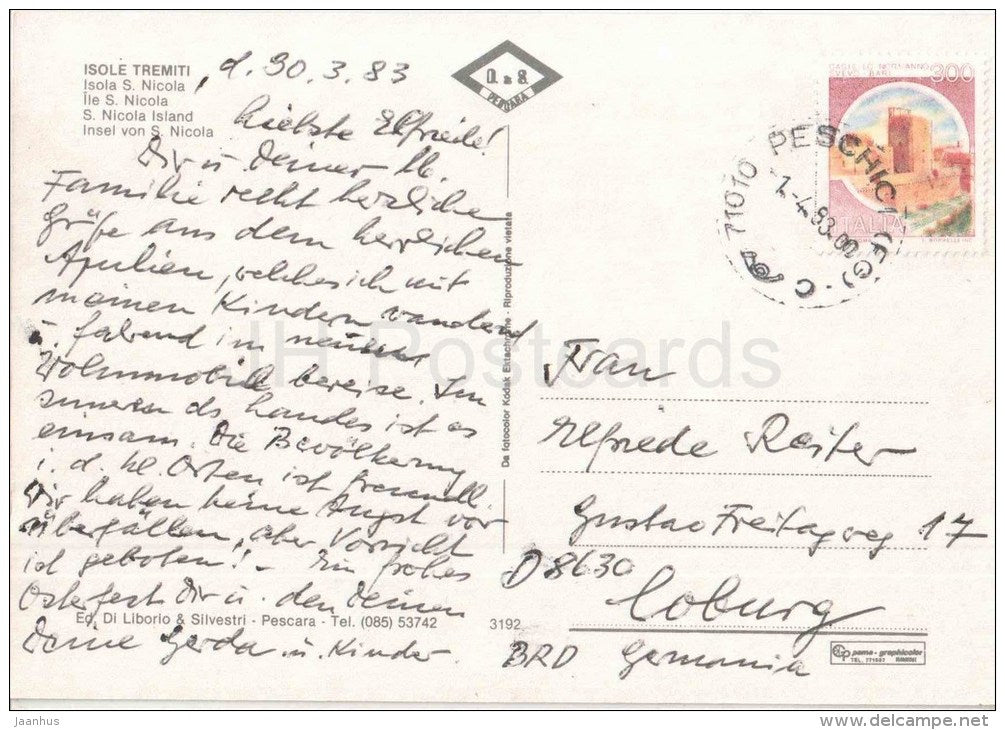 ISOLE TREMITI
Isola S. Nicola
Île S. Nicola
S. Nicola Island
Insel von S. Nicola
d. 30.3.83
D. & S.
PESCARA
Liebste Elfriede!
Dir u. Deiner lb.
Familie recht herzliche
Grüße aus dem herrlichen
Apulien, welches ich mit
meinen Kindern wandernd
u. fahrend im neuen
Wohnmobil bereise. Im
Inneren ds. Landes ist es
einsam. Die Bevölkerung
i. d. kl. Orten ist freundl.
Wir haben keine Angst vor
Überfällen, aber Vorsicht
ist geboten! - Ein frohes
Osterfest Dir u. den Deinen
Deine Gerda u. Kinder.
Ed. Di Liborio & Silvestri - Pescara - Tel. (085) 53742
3192
Da fotocolor Kodak Ektachrome - Riproduzione vietata
300
ITALIA
71010 PESCHICI (FG) · C
1.-4.83.00
Frau
Elfriede Reiter
Gustav Freitagweg 17
D 8630
Coburg
BRD Germania
pama - graphicolor
JH Postcards
Jaanhus
www.delcampe.net